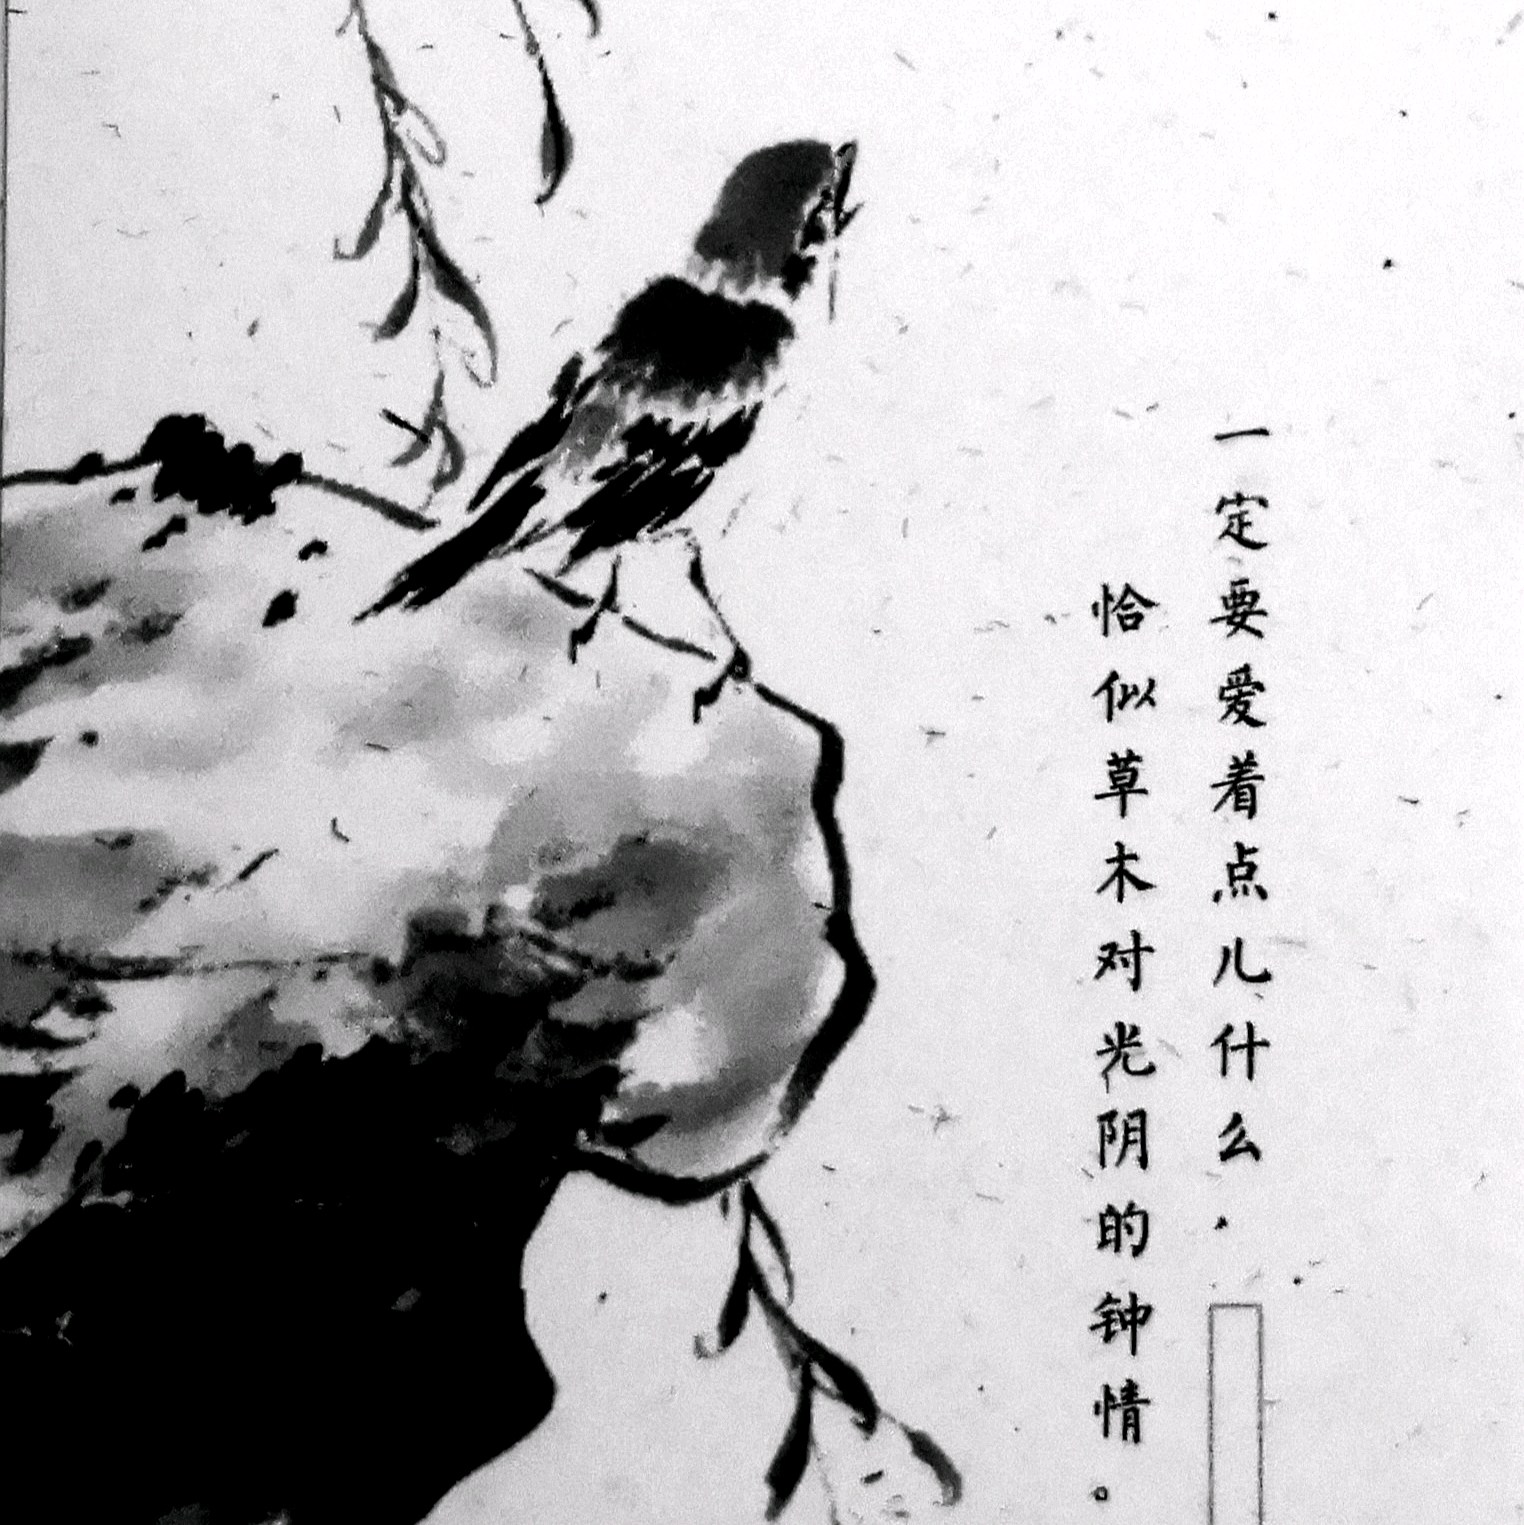 一定要爱着点儿什么，
恰似草木对光阴的钟情。